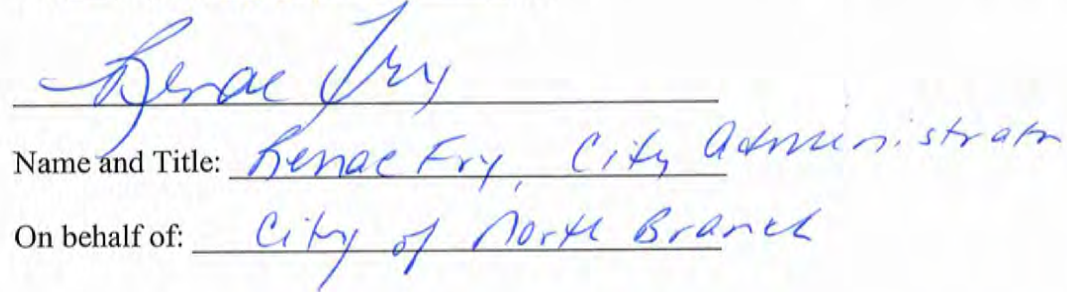 Renae Fry
Name and Title: Renae Fry, City Administrator
On behalf of: City of North Branch